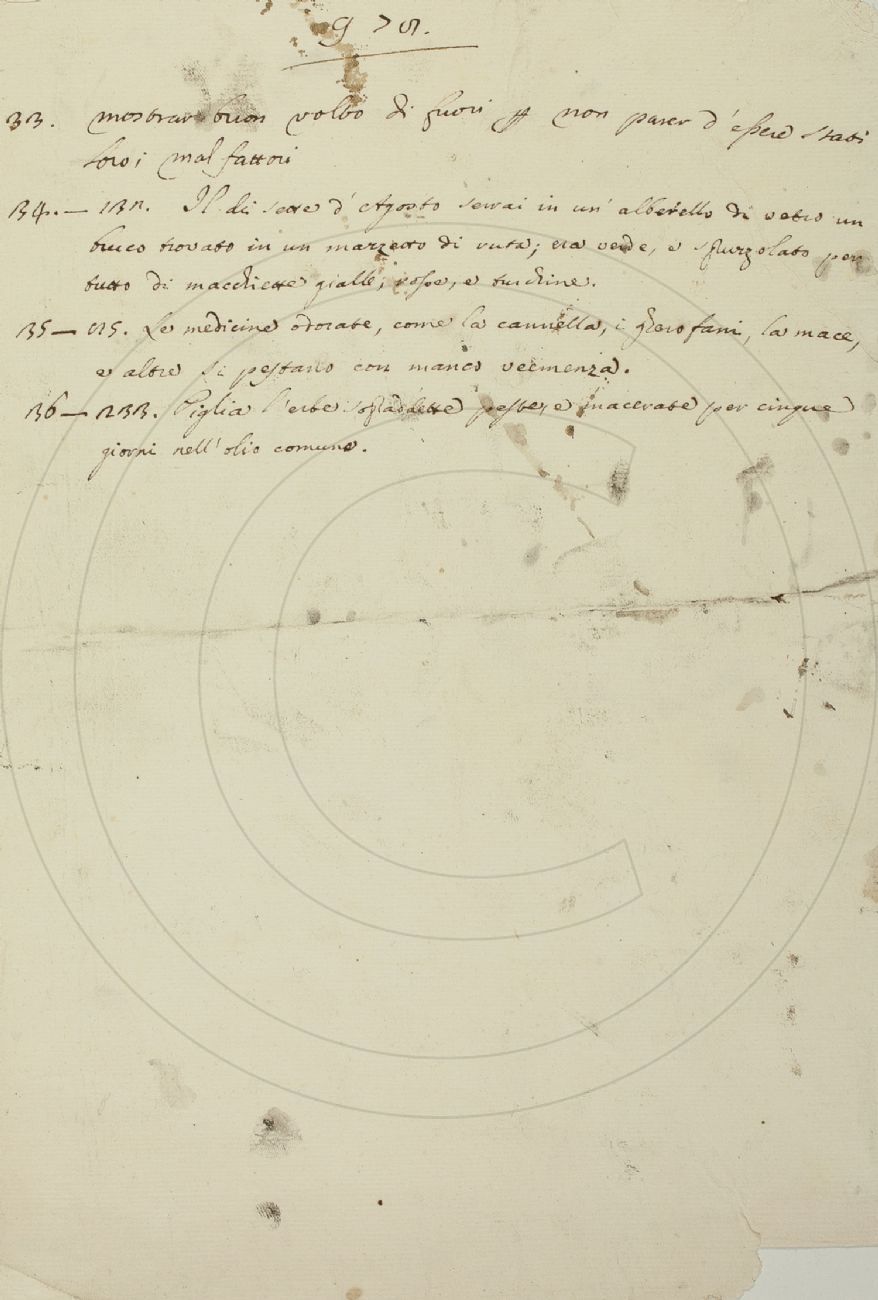 33. mostrar buon volto di fuori p non parer d'essere stati
loro i mal fattori
34. — 132. Il dì sette d'Agosto serrai in un' alberello di vetro un
bruco trovato in un mazzetto di ruta; era verde, e spruzzolato per
tutto di macchiette gialle, rosse, e turchine.
35 — 215. Le medicine odorate, come la cannella, i gherofani, la mace,
e altre si pestano con manco veemenza.
36 — 233. Piglia l'erbe sopraddette peste, e macerate per cinque
giorni nell' olio comune.